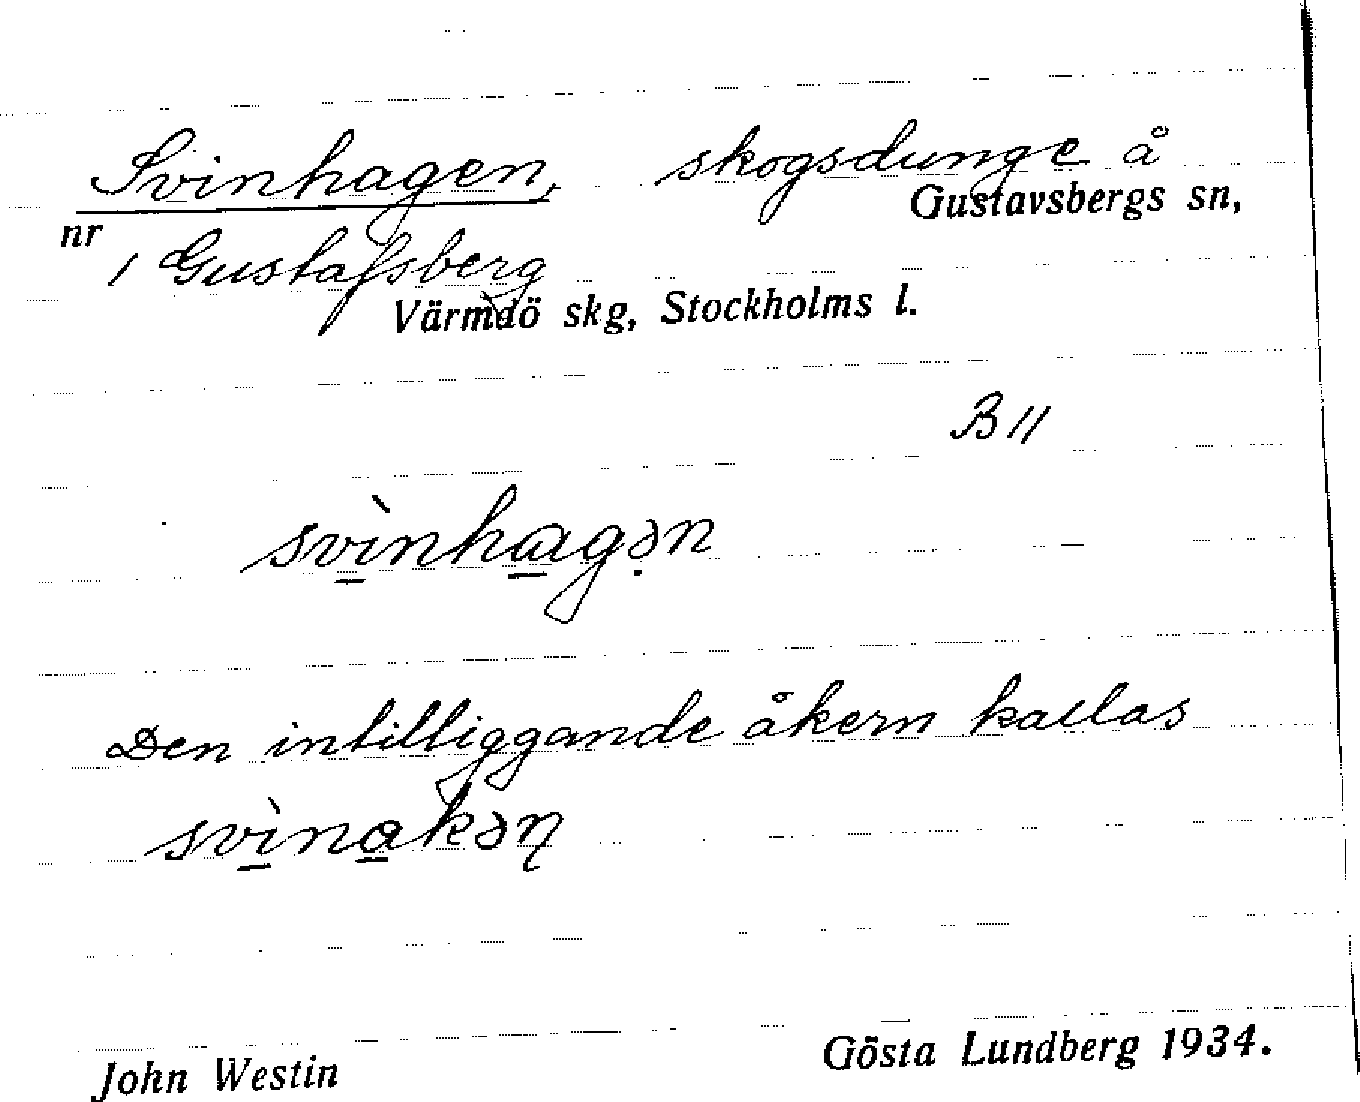 Svinhagen, skogsdunge å
Gustavsbergs sn,
nr 1 Gustafsberg
Värmdö skg, Stockholms l.
B 11
svì̱nha̱gə̣n
Den intilliggande åkern kallas
svì̱na̱kəɳ
John Westin
Gösta Lundberg 1934.